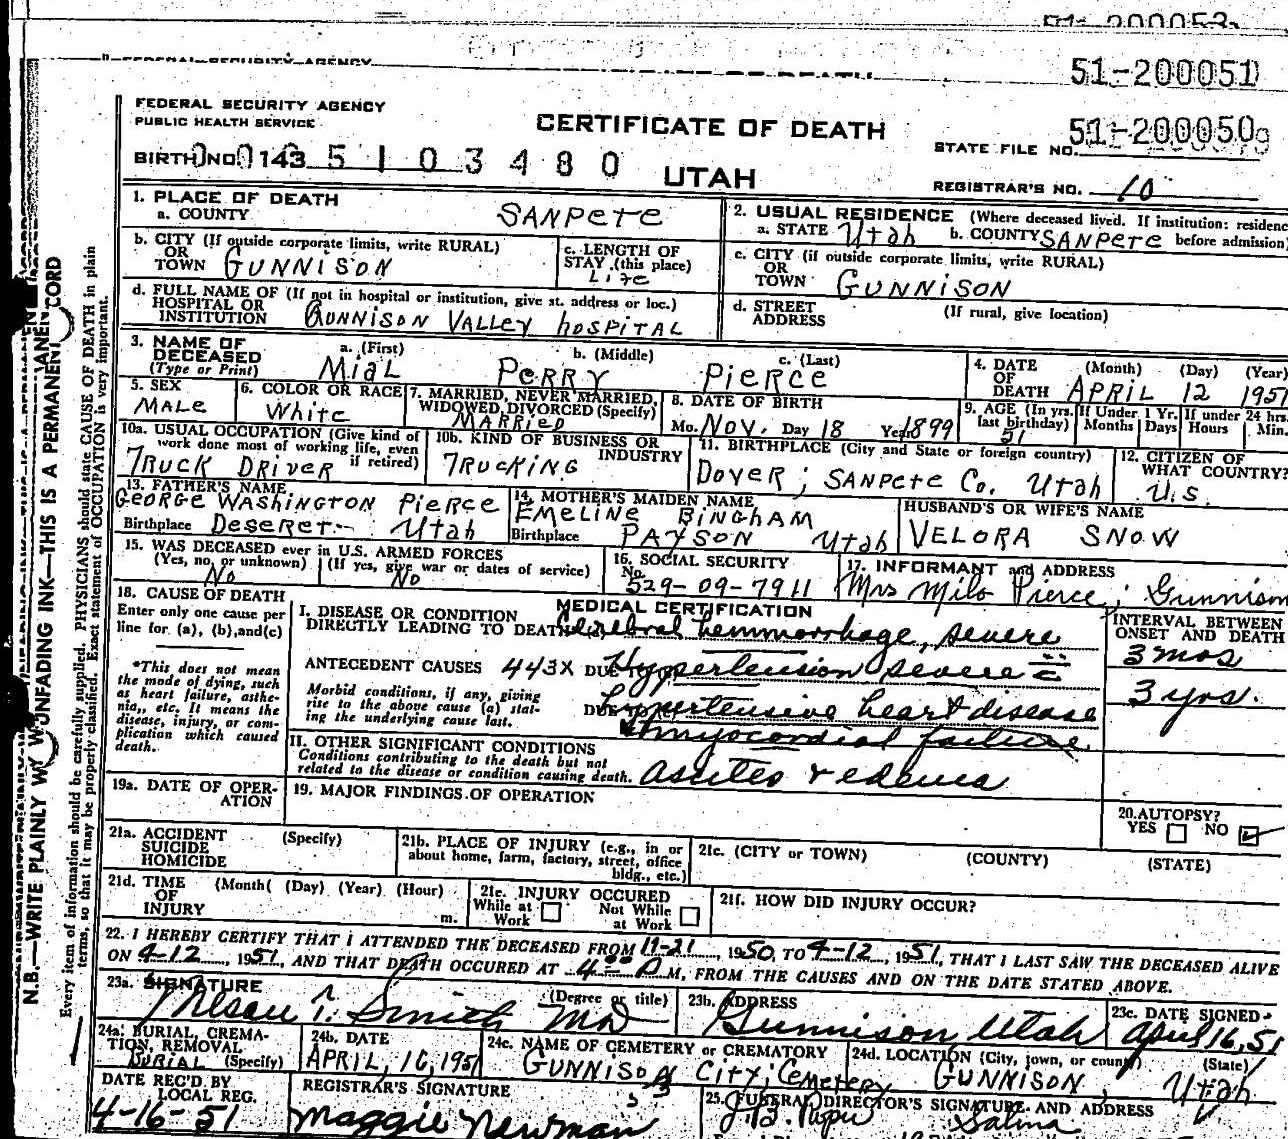 51-200053
FEDERAL SECURITY AGENCY
51-200051
FEDERAL SECURITY AGENCY
PUBLIC HEALTH SERVICE
CERTIFICATE OF DEATH
51-200050
STATE FILE NO.
BIRTH NO. 143 5 1 0 3 4 8 0
UTAH
REGISTRAR'S NO. 10
1. PLACE OF DEATH
a. COUNTY SANPETE
2. USUAL RESIDENCE (Where deceased lived. If institution: residenc
a. STATE Utah b. COUNTY SANPETE before admission)
b. CITY (If outside corporate limits, write RURAL)
OR
TOWN GUNNISON
c. LENGTH OF
STAY (this place)
Life
c. CITY (if outside corporate limits, write RURAL)
OR
TOWN GUNNISON
d. FULL NAME OF (If not in hospital or institution, give st. address or loc.)
HOSPITAL OR
INSTITUTION GUNNISON VALLEY HOSPITAL
d. STREET (If rural, give location)
ADDRESS
3. NAME OF
DECEASED
(Type or Print)
a. (First) b. (Middle) c. (Last)
MiAL PERRY PIERCE
4. DATE (Month) (Day) (Year)
OF
DEATH APRIL 12 1951
5. SEX
MALE
6. COLOR OR RACE
White
7. MARRIED, NEVER MARRIED,
WIDOWED, DIVORCED (Specify)
MARRIED
8. DATE OF BIRTH
Mo. Nov. Day 18 Year 1899
9. AGE (In yrs. last birthday) 51
If Under 1 Yr. Months Days
If under 24 hrs. Hours Min.
10a. USUAL OCCUPATION (Give kind of
work done most of working life, even
if retired)
TRUCK DRIVER
10b. KIND OF BUSINESS OR
INDUSTRY
TRUCKING
11. BIRTHPLACE (City and State or foreign country)
DOVER; SANPETE Co. Utah
12. CITIZEN OF
WHAT COUNTRY?
U.S.
13. FATHER'S NAME
GEORGE WASHINGTON PIERCE
Birthplace DESERET Utah
14. MOTHER'S MAIDEN NAME
EMELINE BINGHAM
Birthplace PAYSON Utah
HUSBAND'S OR WIFE'S NAME
VELORA SNOW
15. WAS DECEASED ever in U.S. ARMED FORCES
(Yes, no, or unknown) (If yes, give war or dates of service)
No No
16. SOCIAL SECURITY
No.
529-09-7911
17. INFORMANT and ADDRESS
Mrs Milo Pierce, Gunnison
18. CAUSE OF DEATH
Enter only one cause per
line for (a), (b), and (c)
*This does not mean
the mode of dying, such
as heart failure, asthe-
nia,, etc. It means the
disease, injury, or com-
plication which caused
death.
MEDICAL CERTIFICATION
I. DISEASE OR CONDITION
DIRECTLY LEADING TO DEATH Cerebral hemmorrhage, severe
ANTECEDENT CAUSES 443X DUE Hypertension severe c̄
Morbid conditions, if any, giving
rise to the above cause (a) stat-
ing the underlying cause last.
DUE hypertensive heart disease
myocardial failure
II. OTHER SIGNIFICANT CONDITIONS
Conditions contributing to the death but not
related to the disease or condition causing death. Ascites & edema
INTERVAL BETWEEN
ONSET AND DEATH
3 mos
3 yrs.
19a. DATE OF OPER-
ATION
19. MAJOR FINDINGS OF OPERATION
20. AUTOPSY?
YES NO ✓
21a. ACCIDENT (Specify)
SUICIDE
HOMICIDE
21b. PLACE OF INJURY (e.g., in or
about home, farm, factory, street, office
bldg., etc.)
21c. (CITY or TOWN) (COUNTY) (STATE)
21d. TIME (Month( (Day) (Year) (Hour)
OF
INJURY m.
21e. INJURY OCCURED
While at Work Not While at Work
21f. HOW DID INJURY OCCUR?
22. I HEREBY CERTIFY THAT I ATTENDED THE DECEASED FROM 11-21, 1950, TO 4-12, 1951, THAT I LAST SAW THE DECEASED ALIVE
ON 4-12, 1951, AND THAT DEATH OCCURED AT 4:00 P M, FROM THE CAUSES AND ON THE DATE STATED ABOVE.
23a. SIGNATURE (Degree or title)
Smith MD
23b. ADDRESS
Gunnison, Utah
23c. DATE SIGNED
April 16, 51
24a. BURIAL, CREMA-
TION, REMOVAL
BURIAL (Specify)
24b. DATE
APRIL, 16, 1951
24c. NAME OF CEMETERY or CREMATORY
GUNNISON CITY; Cemetery
24d. LOCATION (City, town, or county) (State)
GUNNISON, Utah
DATE REC'D BY
LOCAL REG.
4-16-51
REGISTRAR'S SIGNATURE
Maggie Newman
25. FUNERAL DIRECTOR'S SIGNATURE AND ADDRESS
Salina
N.B.—WRITE PLAINLY W UNFADING INK—THIS IS A PERMANENT RECORD
Every item of information should be carefully supplied. PHYSICIANS should state CAUSE OF DEATH in plain
terms, so that it may be properly classified. Exact statement of OCCUPATION is very important.